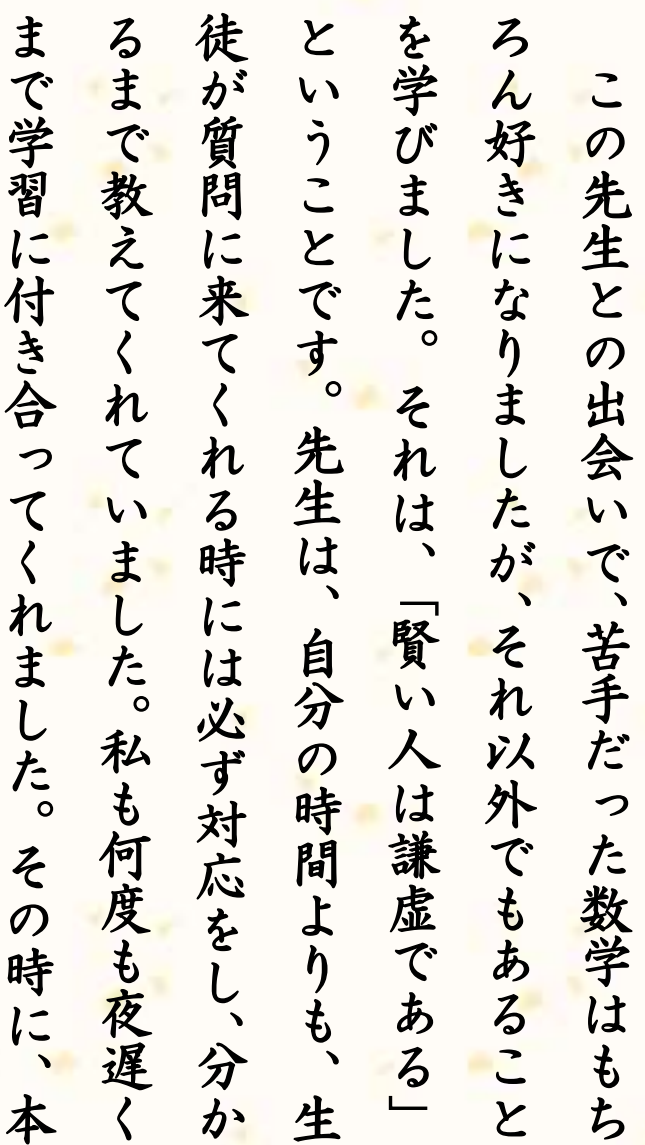 この先生との出会いで、苦手だった数学はもち
ろん好きになりましたが、それ以外でもあること
を学びました。それは、「賢い人は謙虚である」
ということです。先生は、自分の時間よりも、生
徒が質問に来てくれる時には必ず対応をし、分か
るまで教えてくれていました。私も何度も夜遅く
まで学習に付き合ってくれました。その時に、本